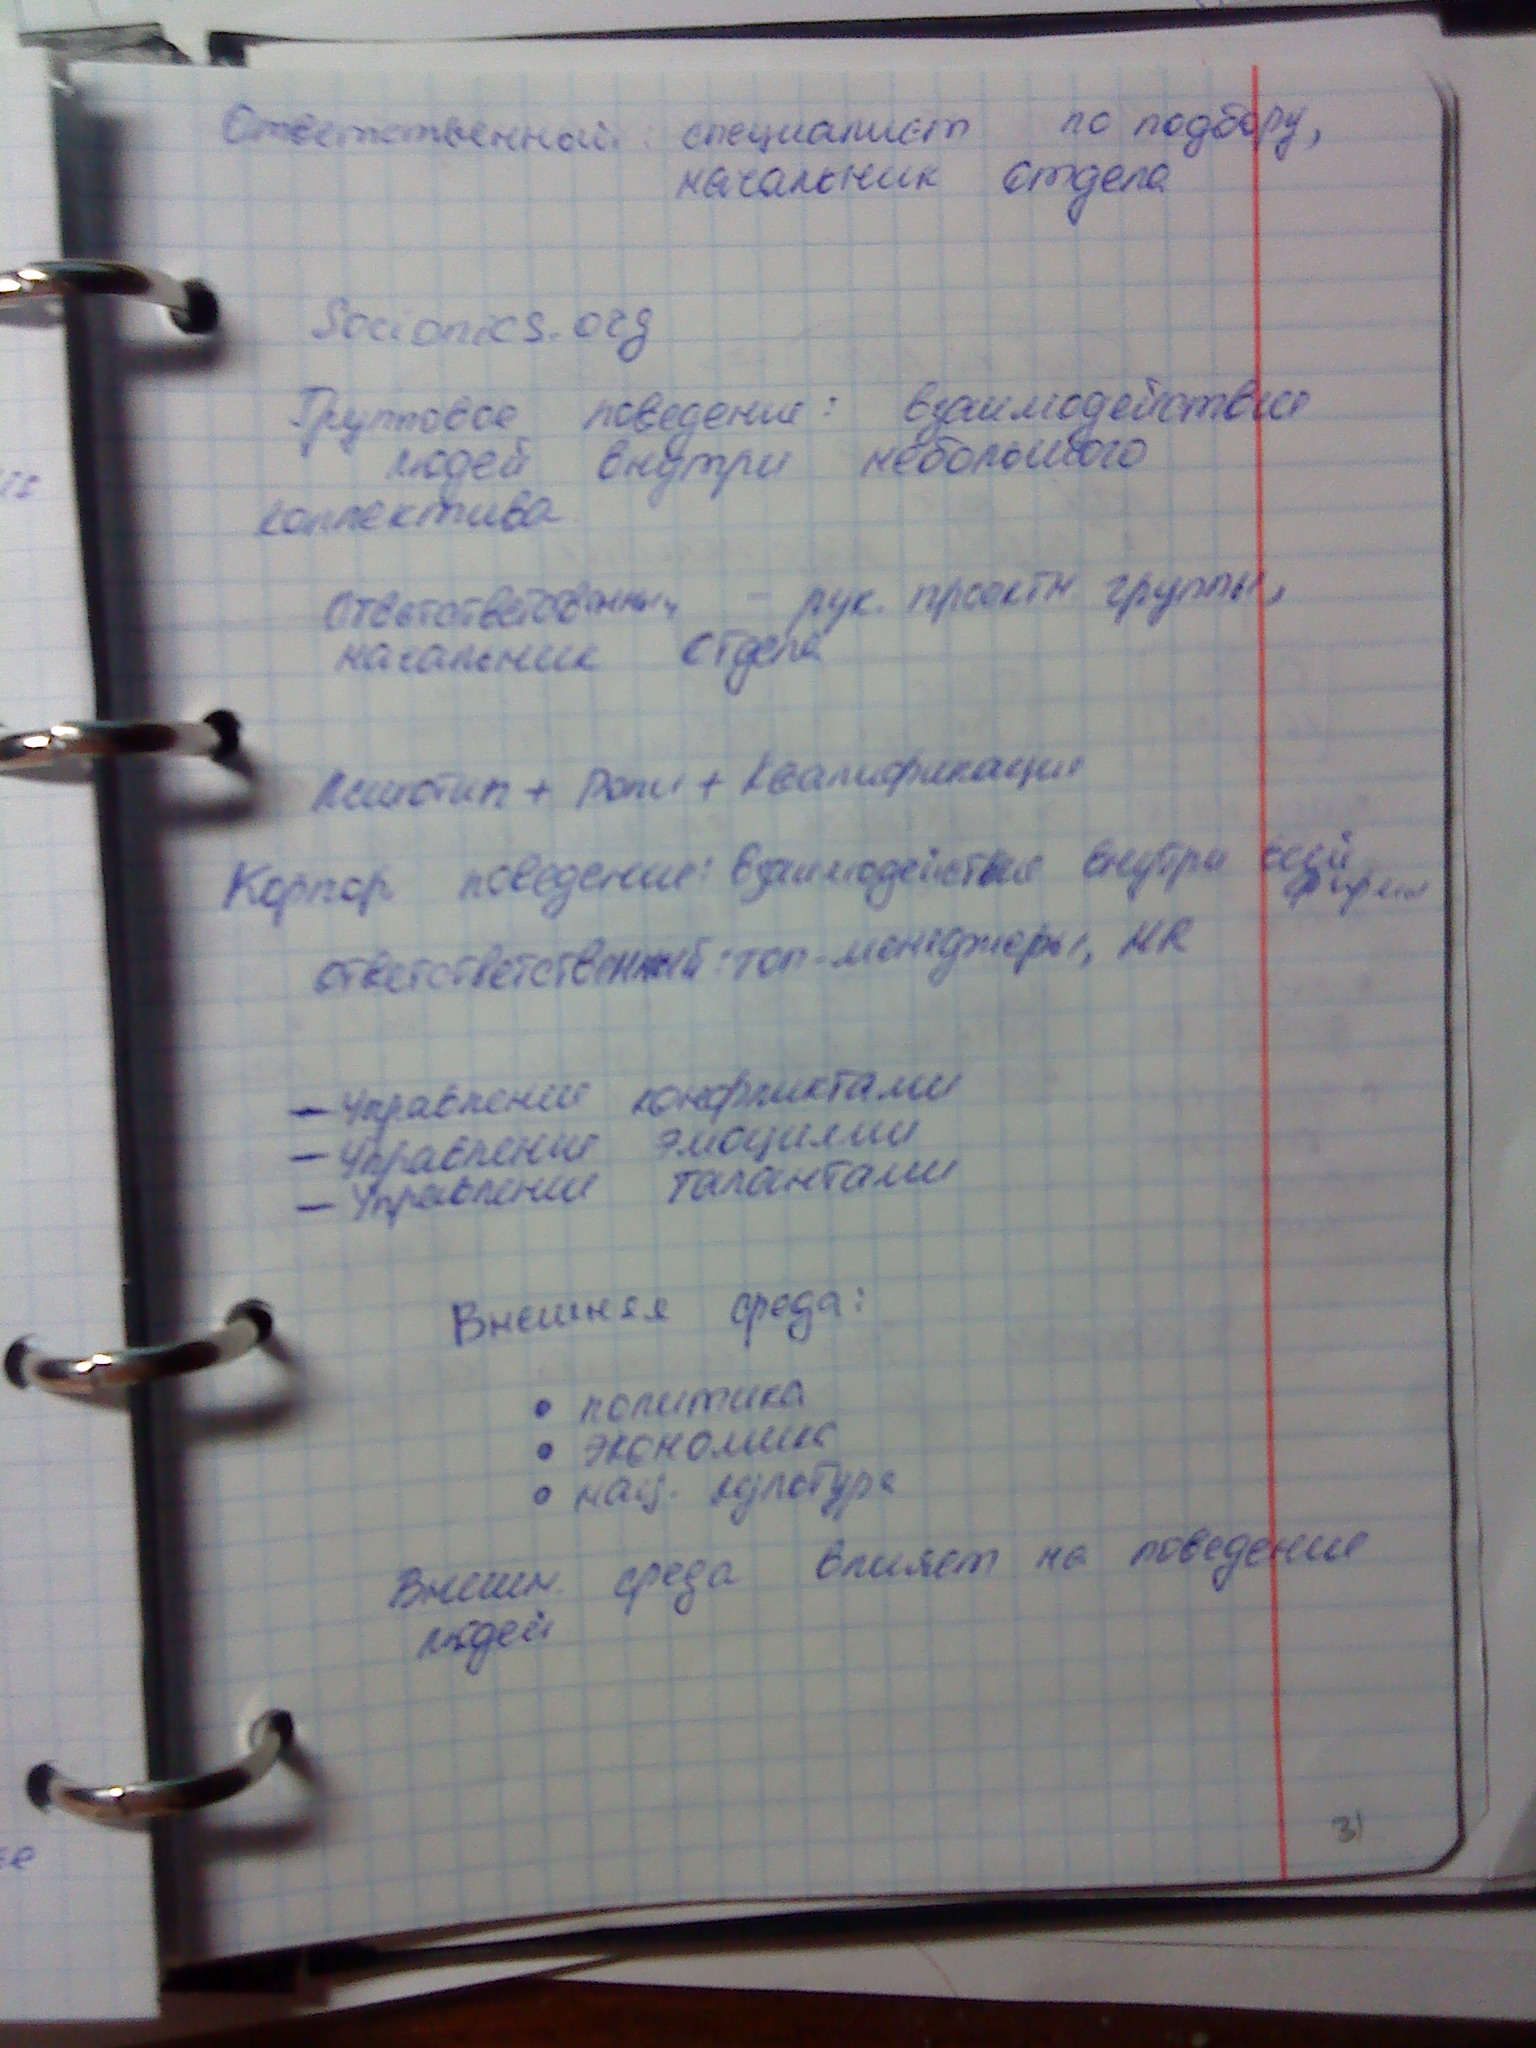 Ответственной: специалист по подбору,
начальник отдела
Socionics.org
Групповое поведение: взаимодействие
людей внутри небольшого
коллектива
- рук. проектн группы,
начальник отдела
Психотип + Роли + Квалификация
Корпор поведение: взаимодействие внутри всей
фирмы
ответстветственный: топ-менеджеры, HR
— Управление конфликтами
— Управление эмоциями
— Управление талантами
Внешняя среда:
• политика
• экономика
• нац. культура
Внешн. среда влияет на поведение
людей
31